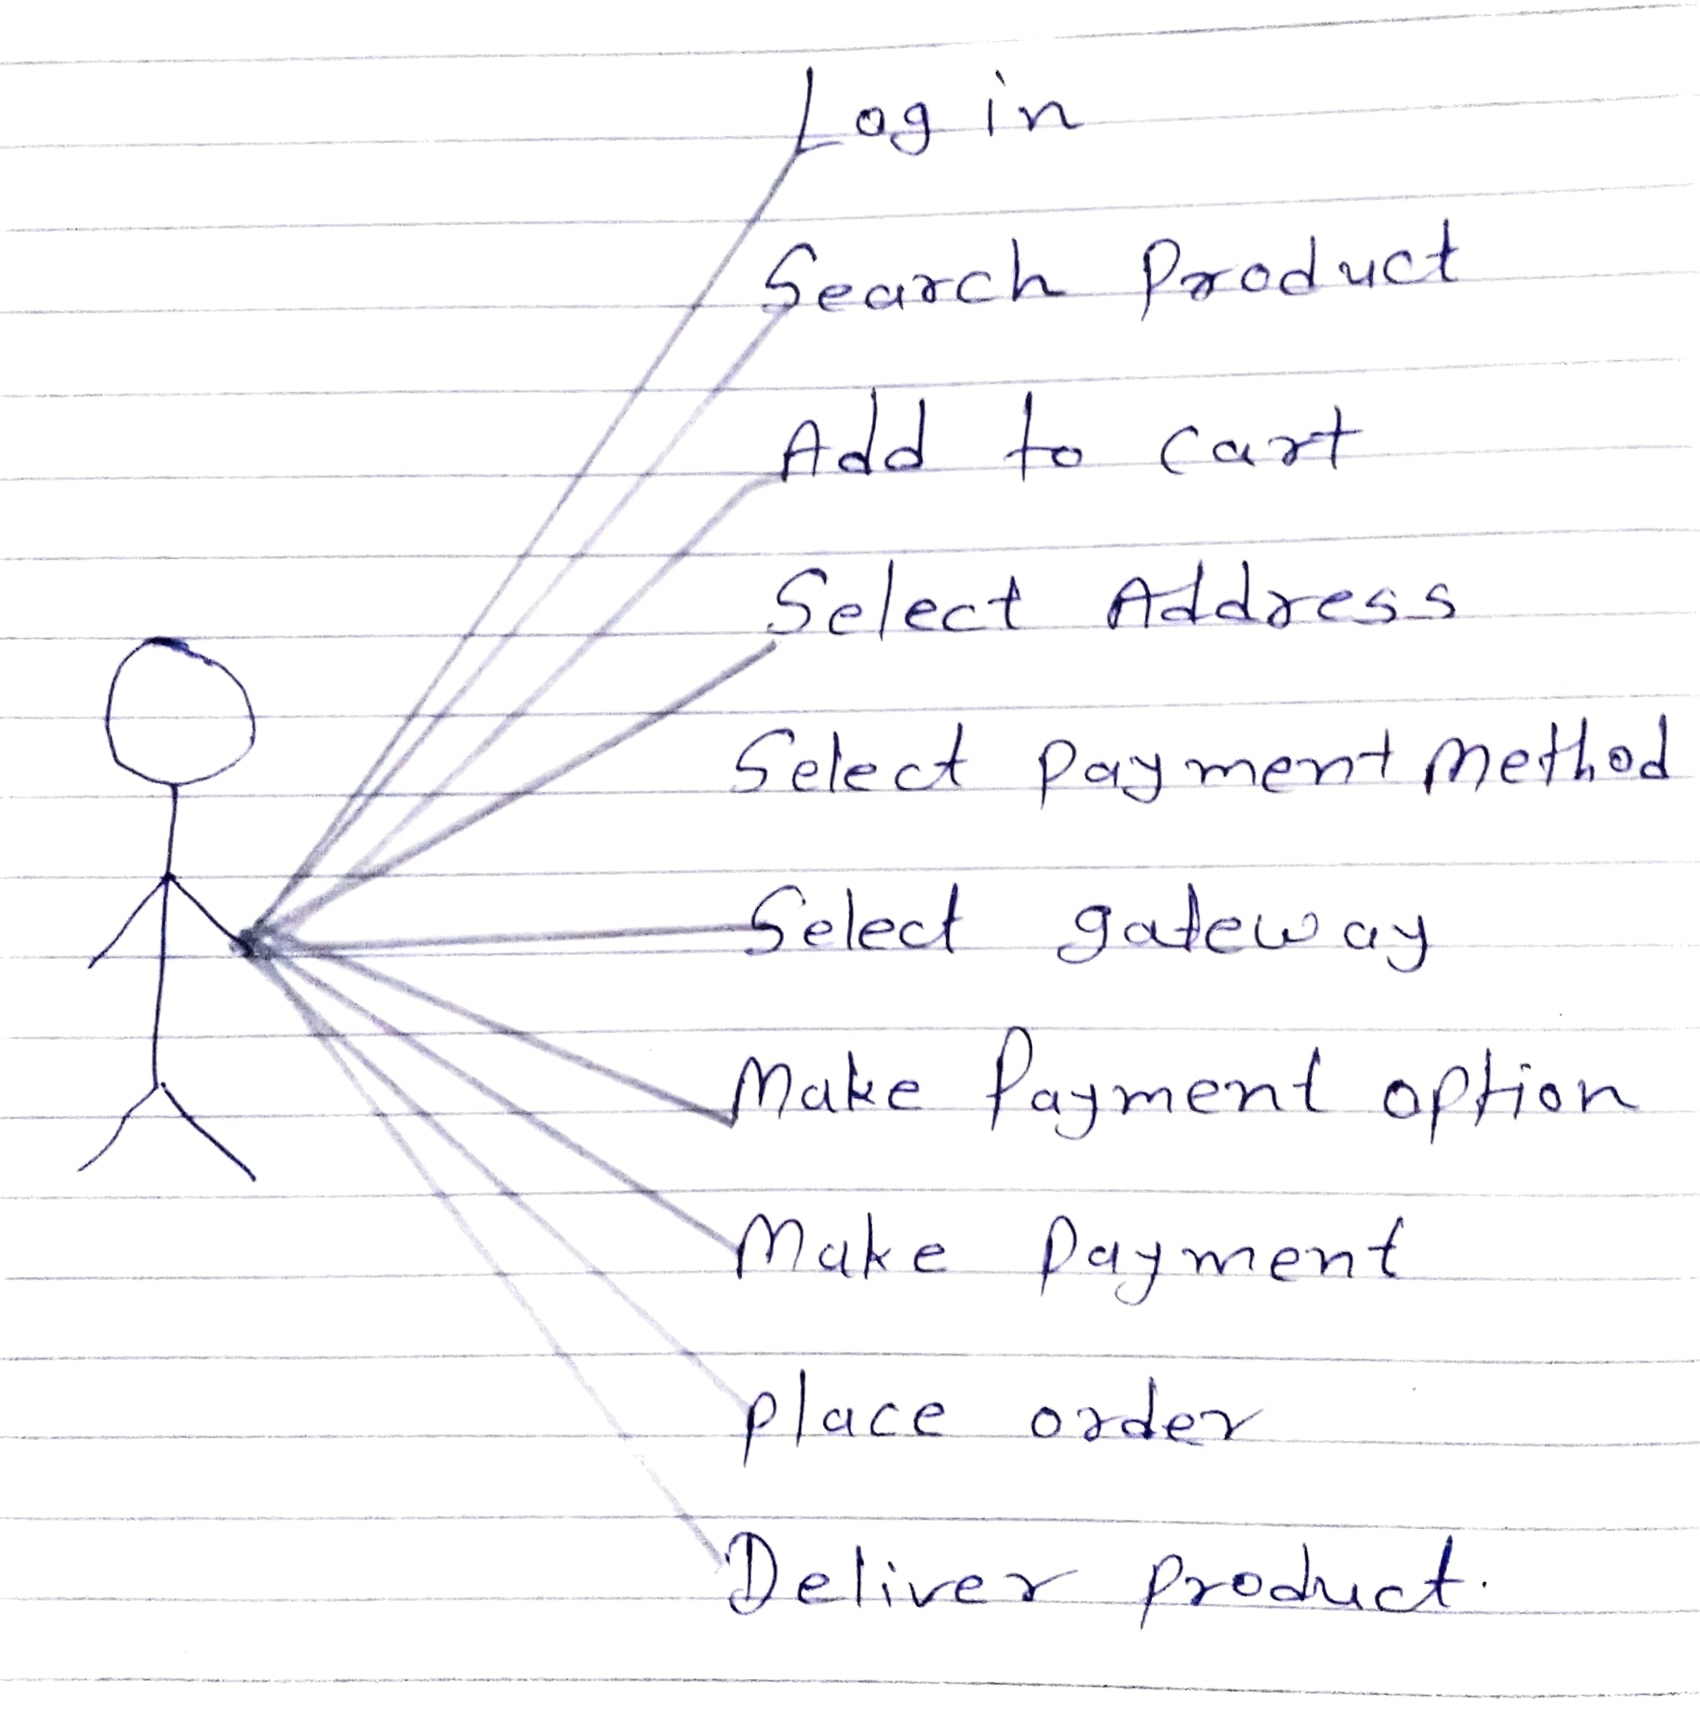 Log in
Search Product
Add to cart
Select Address
Select payment Method
Select gateway
Make Payment option
Make Payment
place order
Deliver product.